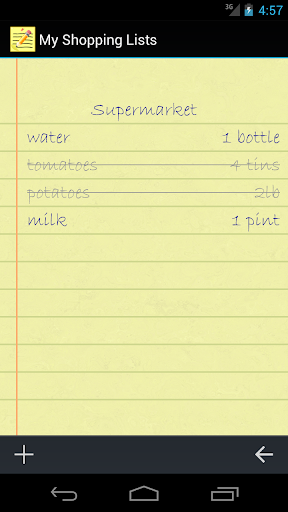 3G 4:57
My Shopping Lists
Supermarket
water 1 bottle
tomatoes 4 tins
potatoes 2lb
milk 1 pint